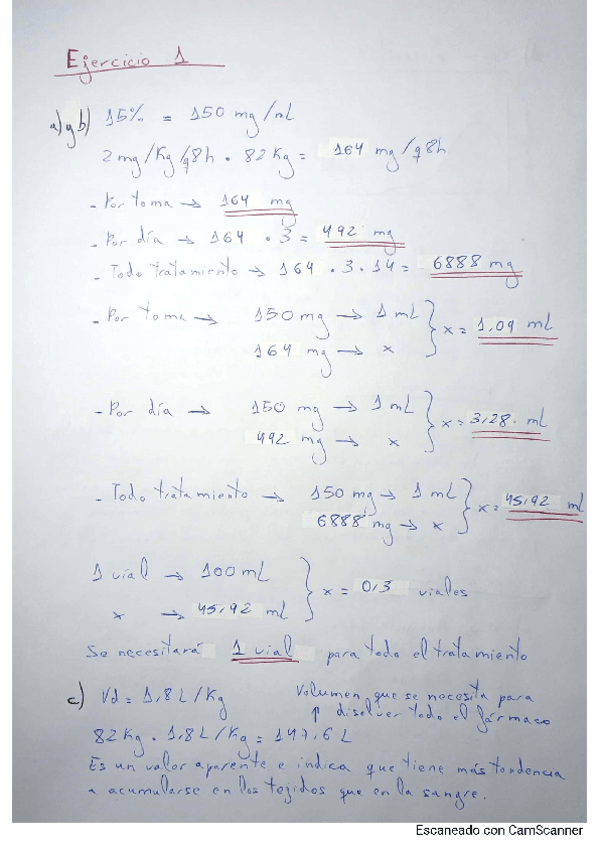 Ejercicio 1
a) y b) 15% = 150 mg/mL
2 mg/Kg/q8h · 82 Kg = 164 mg/q8h
- Por toma → 164 mg
- Por día → 164 · 3 = 492 mg
- Todo tratamiento → 164 · 3 · 14 = 6888 mg
- Por toma → 150 mg → 1 mL } x = 1,09 mL
164 mg → x
- Por día → 150 mg → 1 mL } x = 3,28 mL
492 mg → x
- Todo tratamiento → 150 mg → 1 mL } x = 45,92 mL
6888 mg → x
1 vial → 100 mL } x = 0,3 viales
x → 45,92 mL
Se necesitará 1 vial para todo el tratamiento
c) Vd = 1,8 L/Kg
Volumen que se necesita para
↑ disolver todo el fármaco
82 Kg · 1,8 L/Kg = 147,6 L
Es un valor aparente e indica que tiene más tendencia
a acumularse en los tejidos que en la sangre.
Escaneado con CamScanner